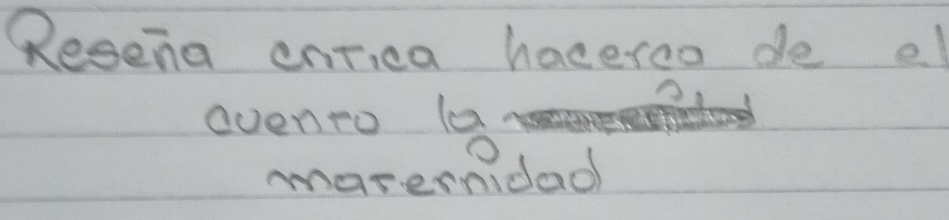 Reseña critica hacerca de el
cuento la
maternidad